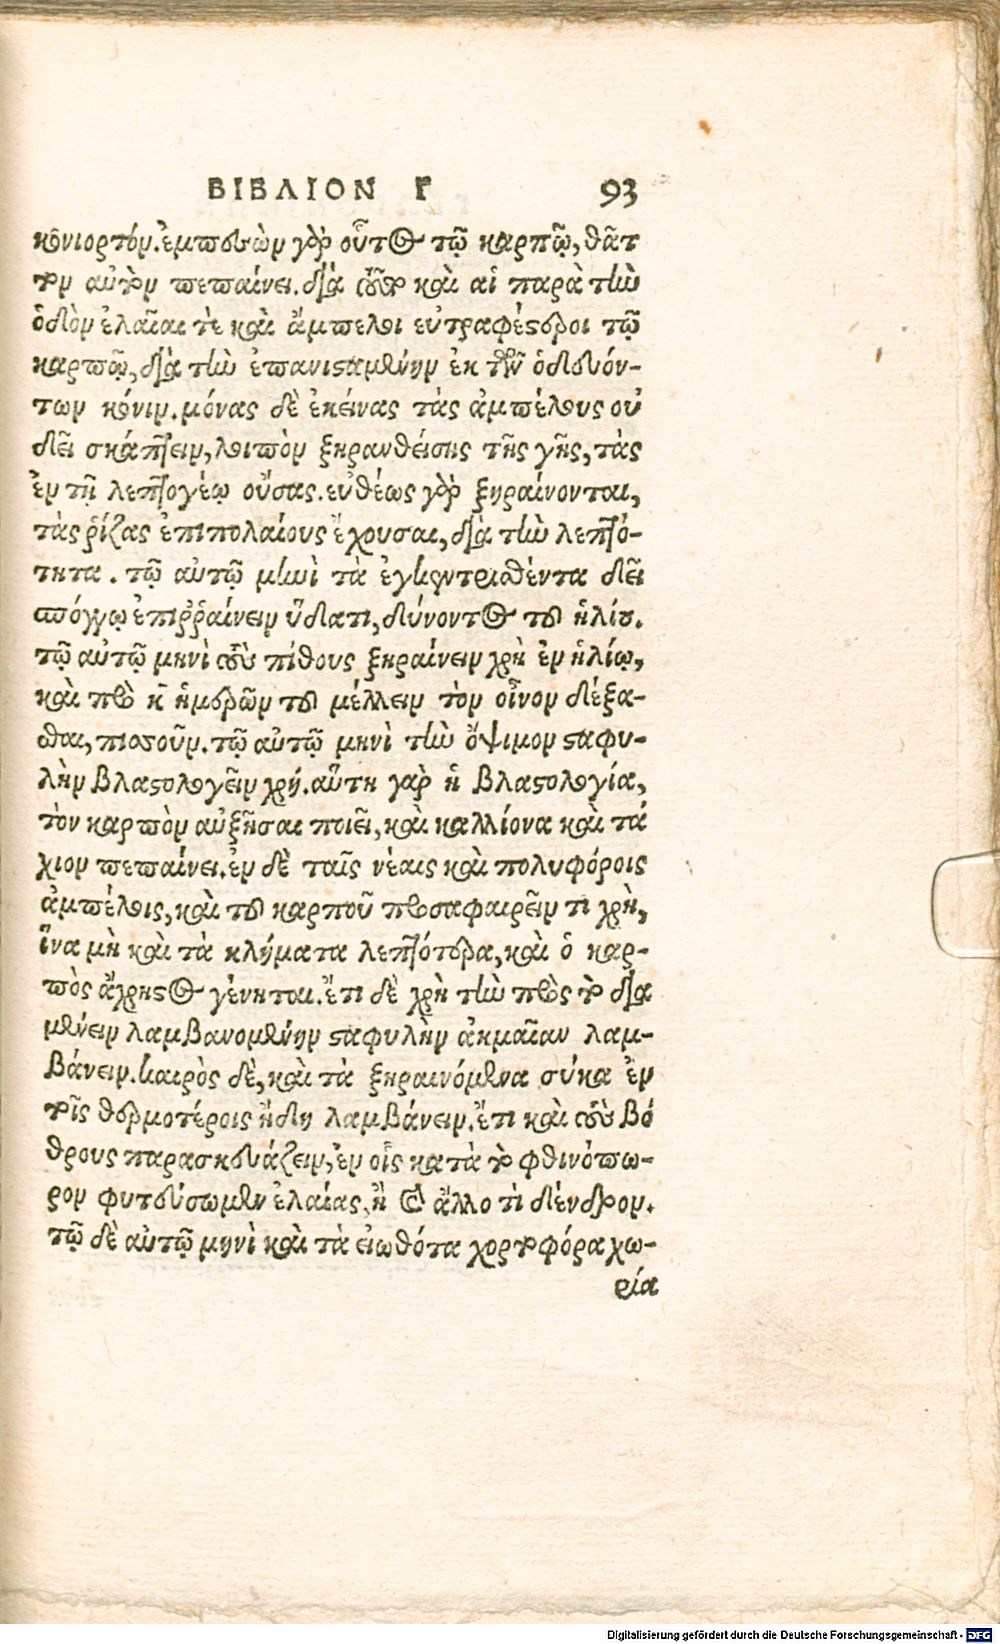 ΒΙΒΛΙΟΝ Γ 93
κονιορτόν. ἐμπεσὼν γὰρ οὗτος τῷ καρπῷ, θᾶτ
τον αὐτὸν πεπαίνει. διὰ τοῦτο καὶ αἱ παρὰ τὴν
ὁδὸν ἐλαῖαι τὲ καὶ ἄμπελοι εὐτραφέστεροι τῷ
καρπῷ, διὰ τὴν ἐπανισταμένην ἐκ τῶν ὁδευόν-
των κόνιν. μόνας δὲ ἐκείνας τὰς ἀμπέλους οὐ
δεῖ σκάπτειν, λοιπὸν ξηρανθείσης τῆς γῆς, τὰς
ἐν τῇ λεπτογέῳ οὔσας. εὐθέως γὰρ ξηραίνονται,
τὰς ῥίζας ἐπιπολαίους ἔχουσαι, διὰ τὴν λεπτό-
τητα. τῷ αὐτῷ μηνὶ τὰ ἐγκεντρισθέντα δεῖ
σπόγγῳ ἐπιῤῥαίνειν ὕδατι, δύνοντος τοῦ ἡλίου.
τῷ αὐτῷ μηνὶ τοὺς πίθους ξηραίνειν χρὴ ἐν ἡλίῳ,
καὶ πρὸ κ̄ ἡμερῶν τοῦ μέλλειν τὸν οἶνον δέξα-
σθαι, πισσοῦν. τῷ αὐτῷ μηνὶ τὴν ὄψιμον σταφυ-
λὴν βλαστολογεῖν χρή. αὕτη γὰρ ἡ βλαστολογία,
τὸν καρπὸν αὐξῆσαι ποιεῖ, καὶ καλλίονα καὶ τά
χιον πεπαίνει. ἐν δὲ ταῖς νέαις καὶ πολυφόροις
ἀμπέλοις, καὶ τοῦ καρποῦ προσαφαιρεῖν τι χρὴ,
ἵνα μὴ καὶ τὰ κλήματα λεπτότερα, καὶ ὁ καρ-
πὸς ἄχρηστος γένηται. ἔτι δὲ χρὴ τὴν πρὸς τὸ δια
μένειν λαμβανομένην σταφυλὴν ἀκμαῖαν λαμ-
βάνειν. καιρὸς δὲ, καὶ τὰ ξηραινόμενα σύκα ἐν
τοῖς θερμοτέροις ἤδη λαμβάνειν. ἔτι καὶ τοὺς βό
θρους παρασκευάζειν, ἐν οἷς κατὰ τὸ φθινόπω-
ρον φυτεύσωμεν ἐλαίας, ἢ καὶ ἄλλο τὶ δένδρον.
τῷ δὲ αὐτῷ μηνὶ καὶ τὰ εἰωθότα χορτοφόρα χω-
ρία
Digitalisierung gefördert durch die Deutsche Forschungsgemeinschaft - DFG